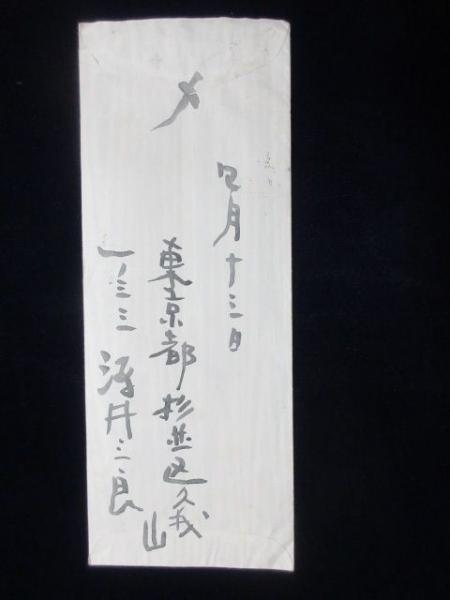 〆
四月十三日
東京都杉並区久我山
一ノ三三 井三良